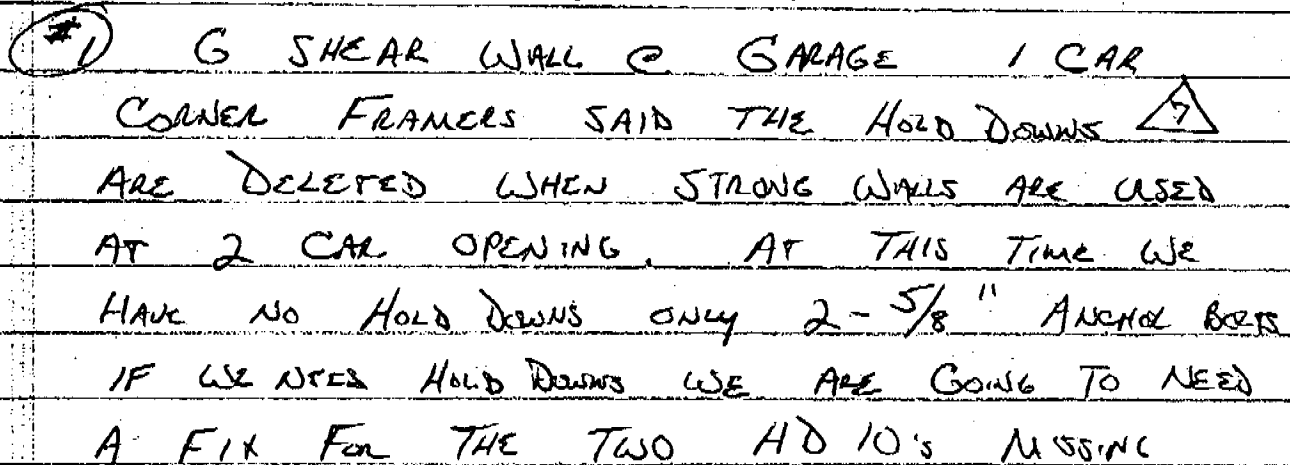 #1 G SHEAR WALL @ GARAGE 1 CAR
CORNER FRAMERS SAID THE HOLD DOWNS 7
ARE DELETED WHEN STRONG WALLS ARE USED
AT 2 CAR OPENING. AT THIS TIME WE
HAVE NO HOLD DOWNS ONLY 2 - 5/8" ANCHOR BOLTS
IF WE NEED HOLD DOWNS WE ARE GOING TO NEED
A FIX FOR THE TWO HD 10's MISSING